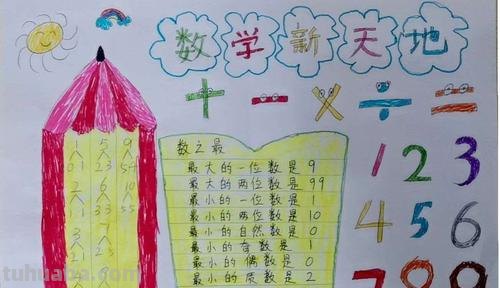 数学新天地
+ - × ÷ =
数之最
最大的一位数是 9
最大的两位数是 99
最小的一位数是 1
最小的两位数是 10
最小的自然数是 0
最小的奇数是 1
最小的偶数是 0
最小的质数是 2
1 5 9
0 1 2 3 5 4
2 6 10
1 1 3 3 5 5
3 7
1 2 3
4 5 6
7 8 9
tuhuaba.com